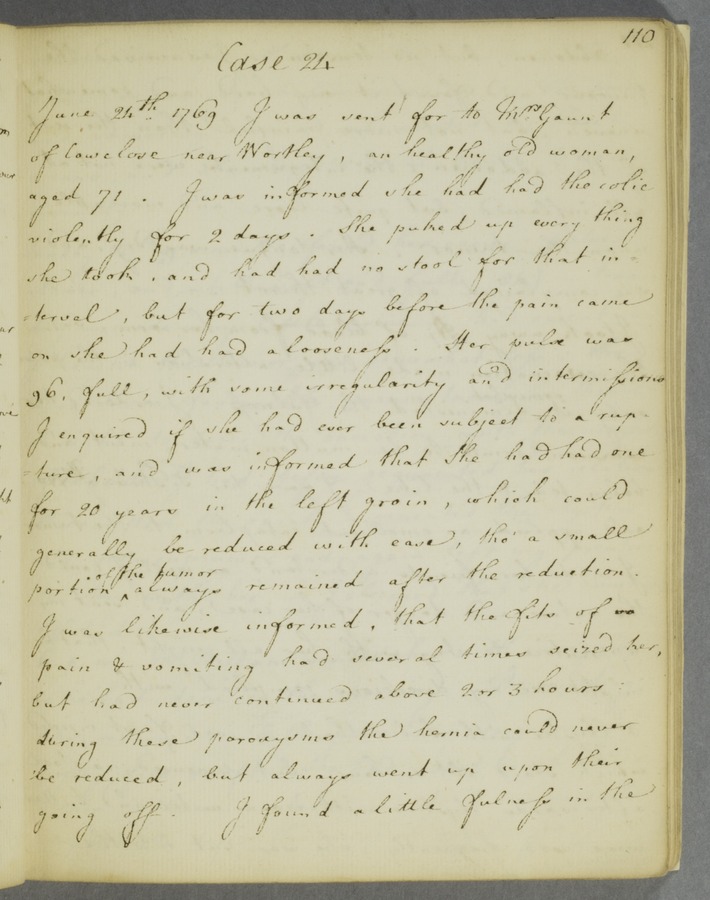 110
Case 24
June 24th. 1769 I was sent for to Mrs. Gaunt
of Lowclose near Wortley, an healthy old woman,
aged 71. I was informed she had had the colic
violently for 2 days. She puked up every thing
she took, and had had no stool for that in-
-terval, but for two days before the pain came
on she had had a looseness. Her pulse was
96, full, with some irregularity and intermissions
I enquired if she had ever been subject to a rup-
-ture, and was informed that she had had one
for 20 years in the left groin, which could
generally be reduced with ease, tho' a small
portion of the tumor always remained after the reduction.
I was likewise informed, that the fits of
pain & vomiting had several times seized her,
but had never continued above 2 or 3 hours:
during these paroxysms the hernia could never
be reduced, but always went up upon their
going off. I found a little fulness in the